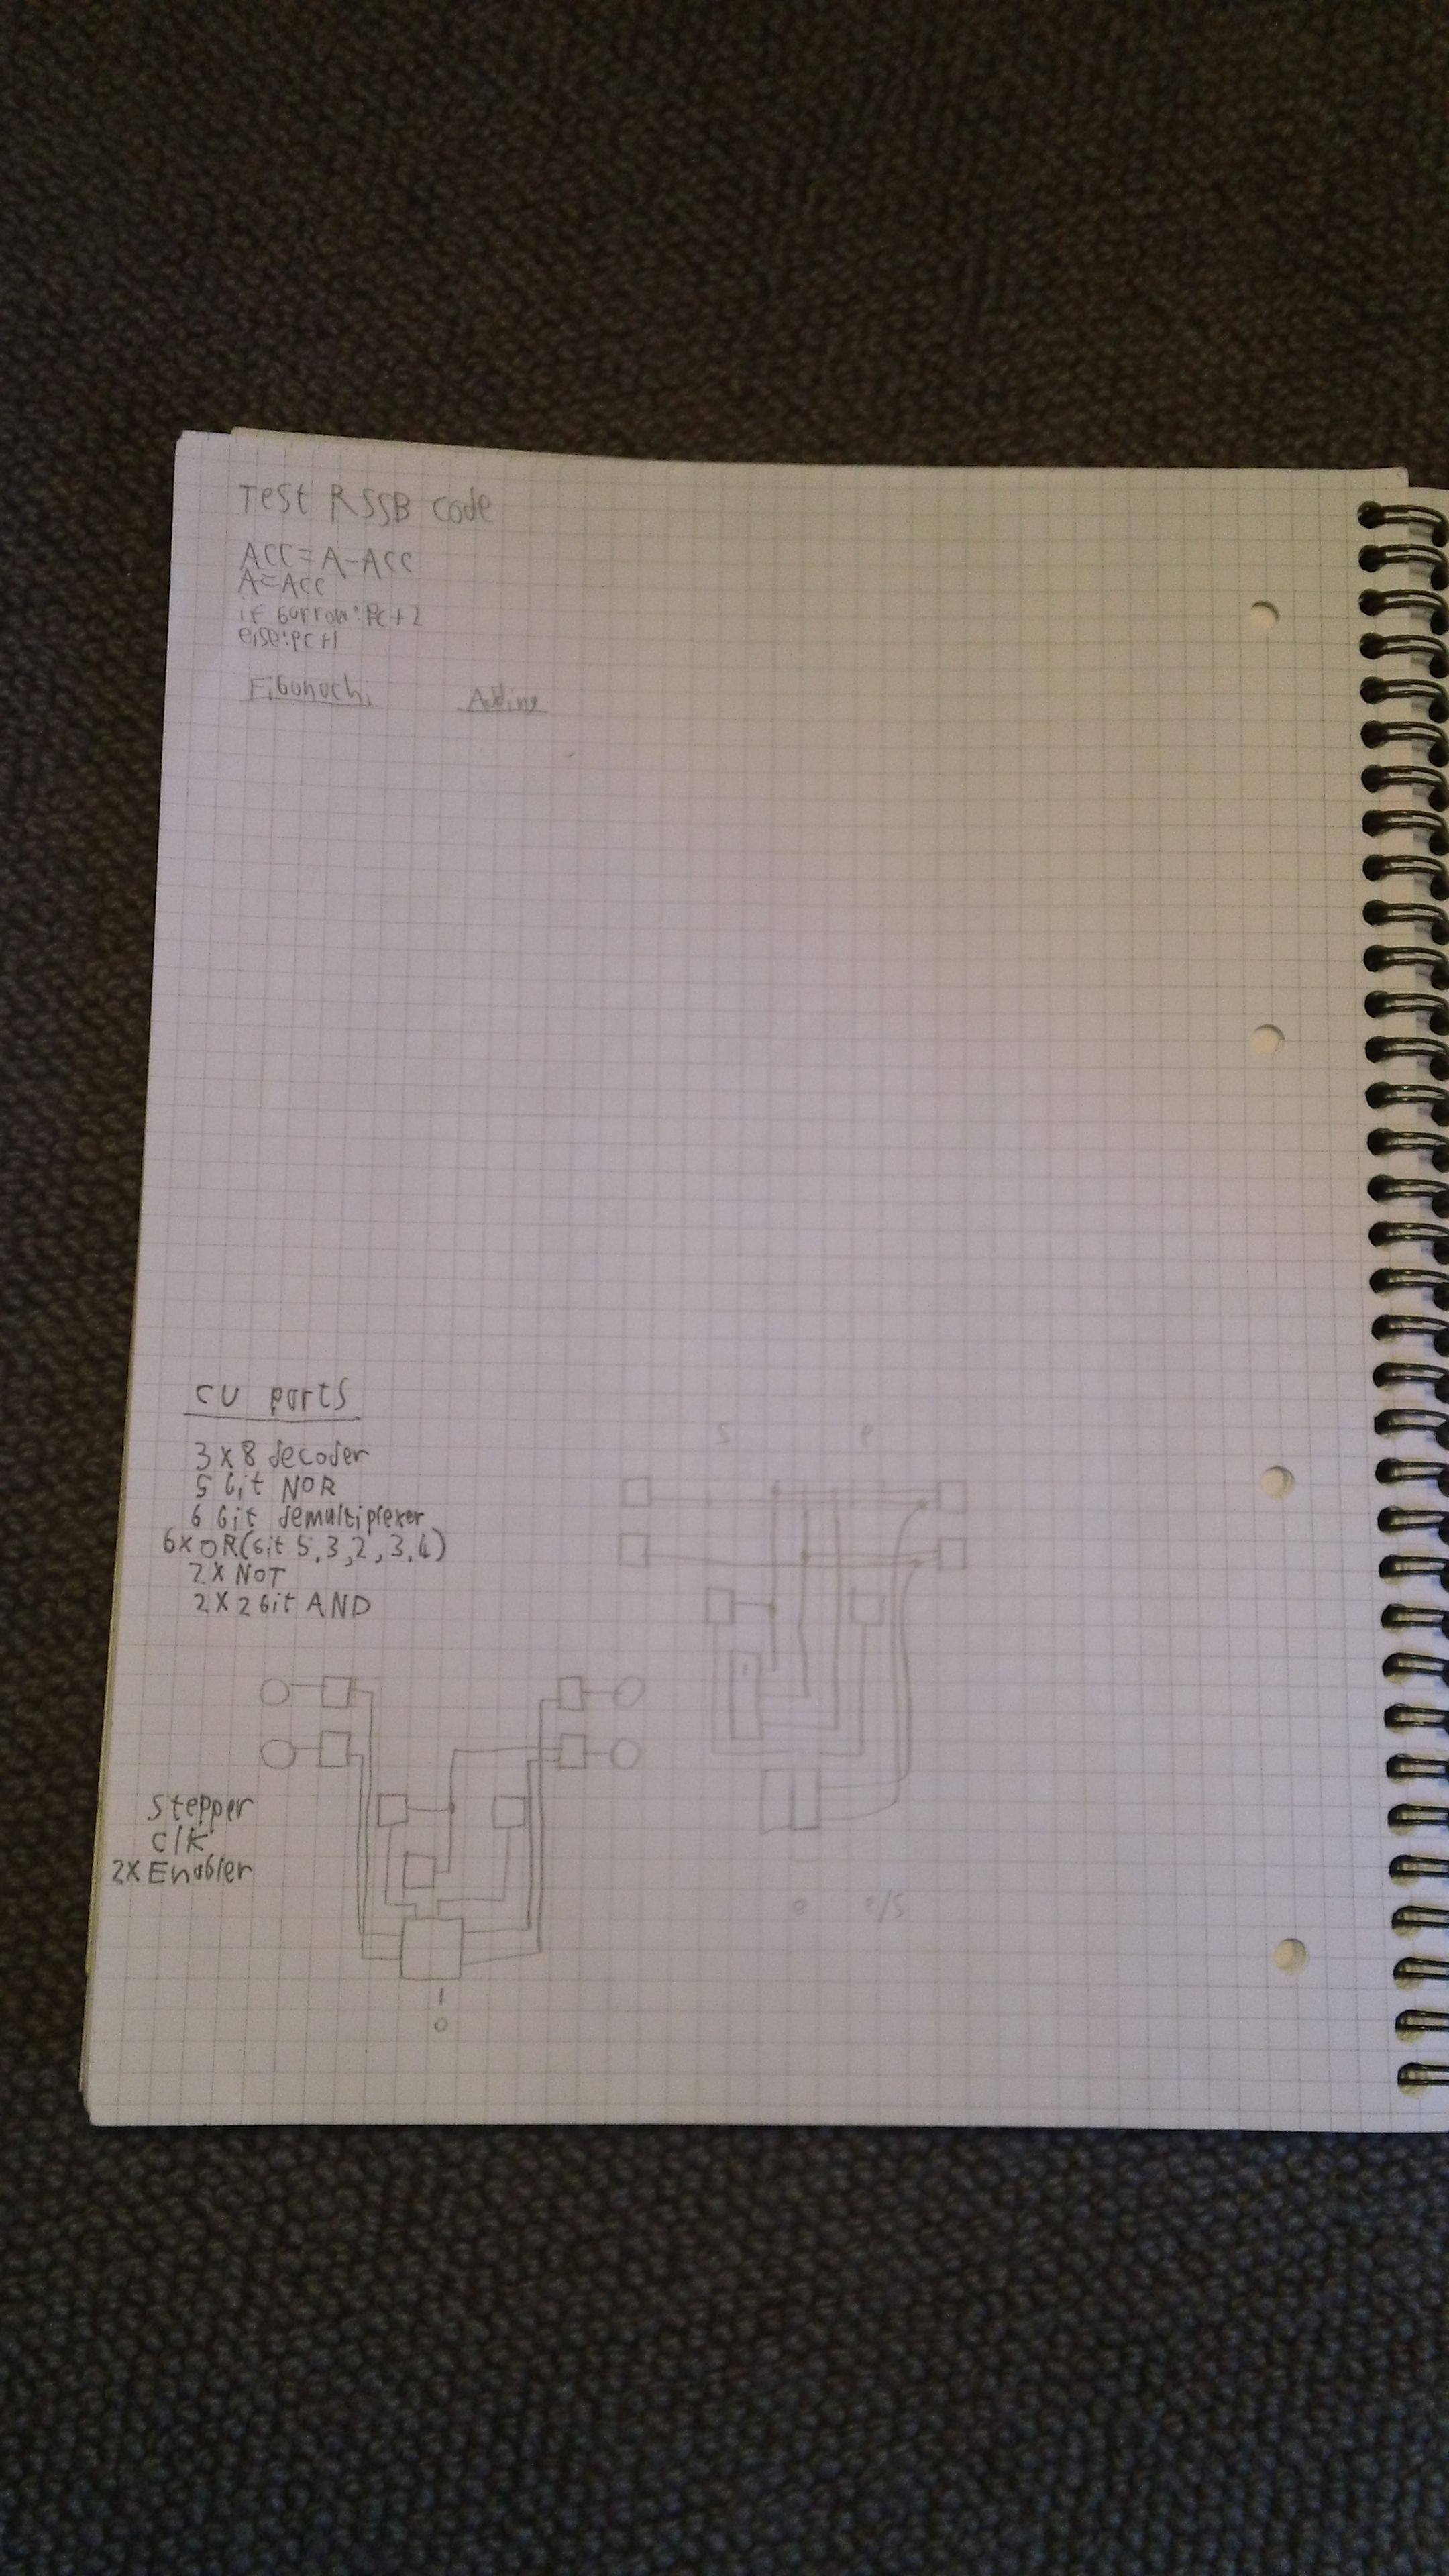 Test RSSB code
ACC=A-ACC
A=ACC
if borrow:Pc+2
else:pc+1
Fibonochi Adding
CU parts
3x8 decoder
5 bit NOR
6 bit demultiplexer
6x OR(bit 5,3,2,3,4)
2x NOT
2x2bit AND
Stepper
Clk
2x Enabler
1
0
S e
e e/S